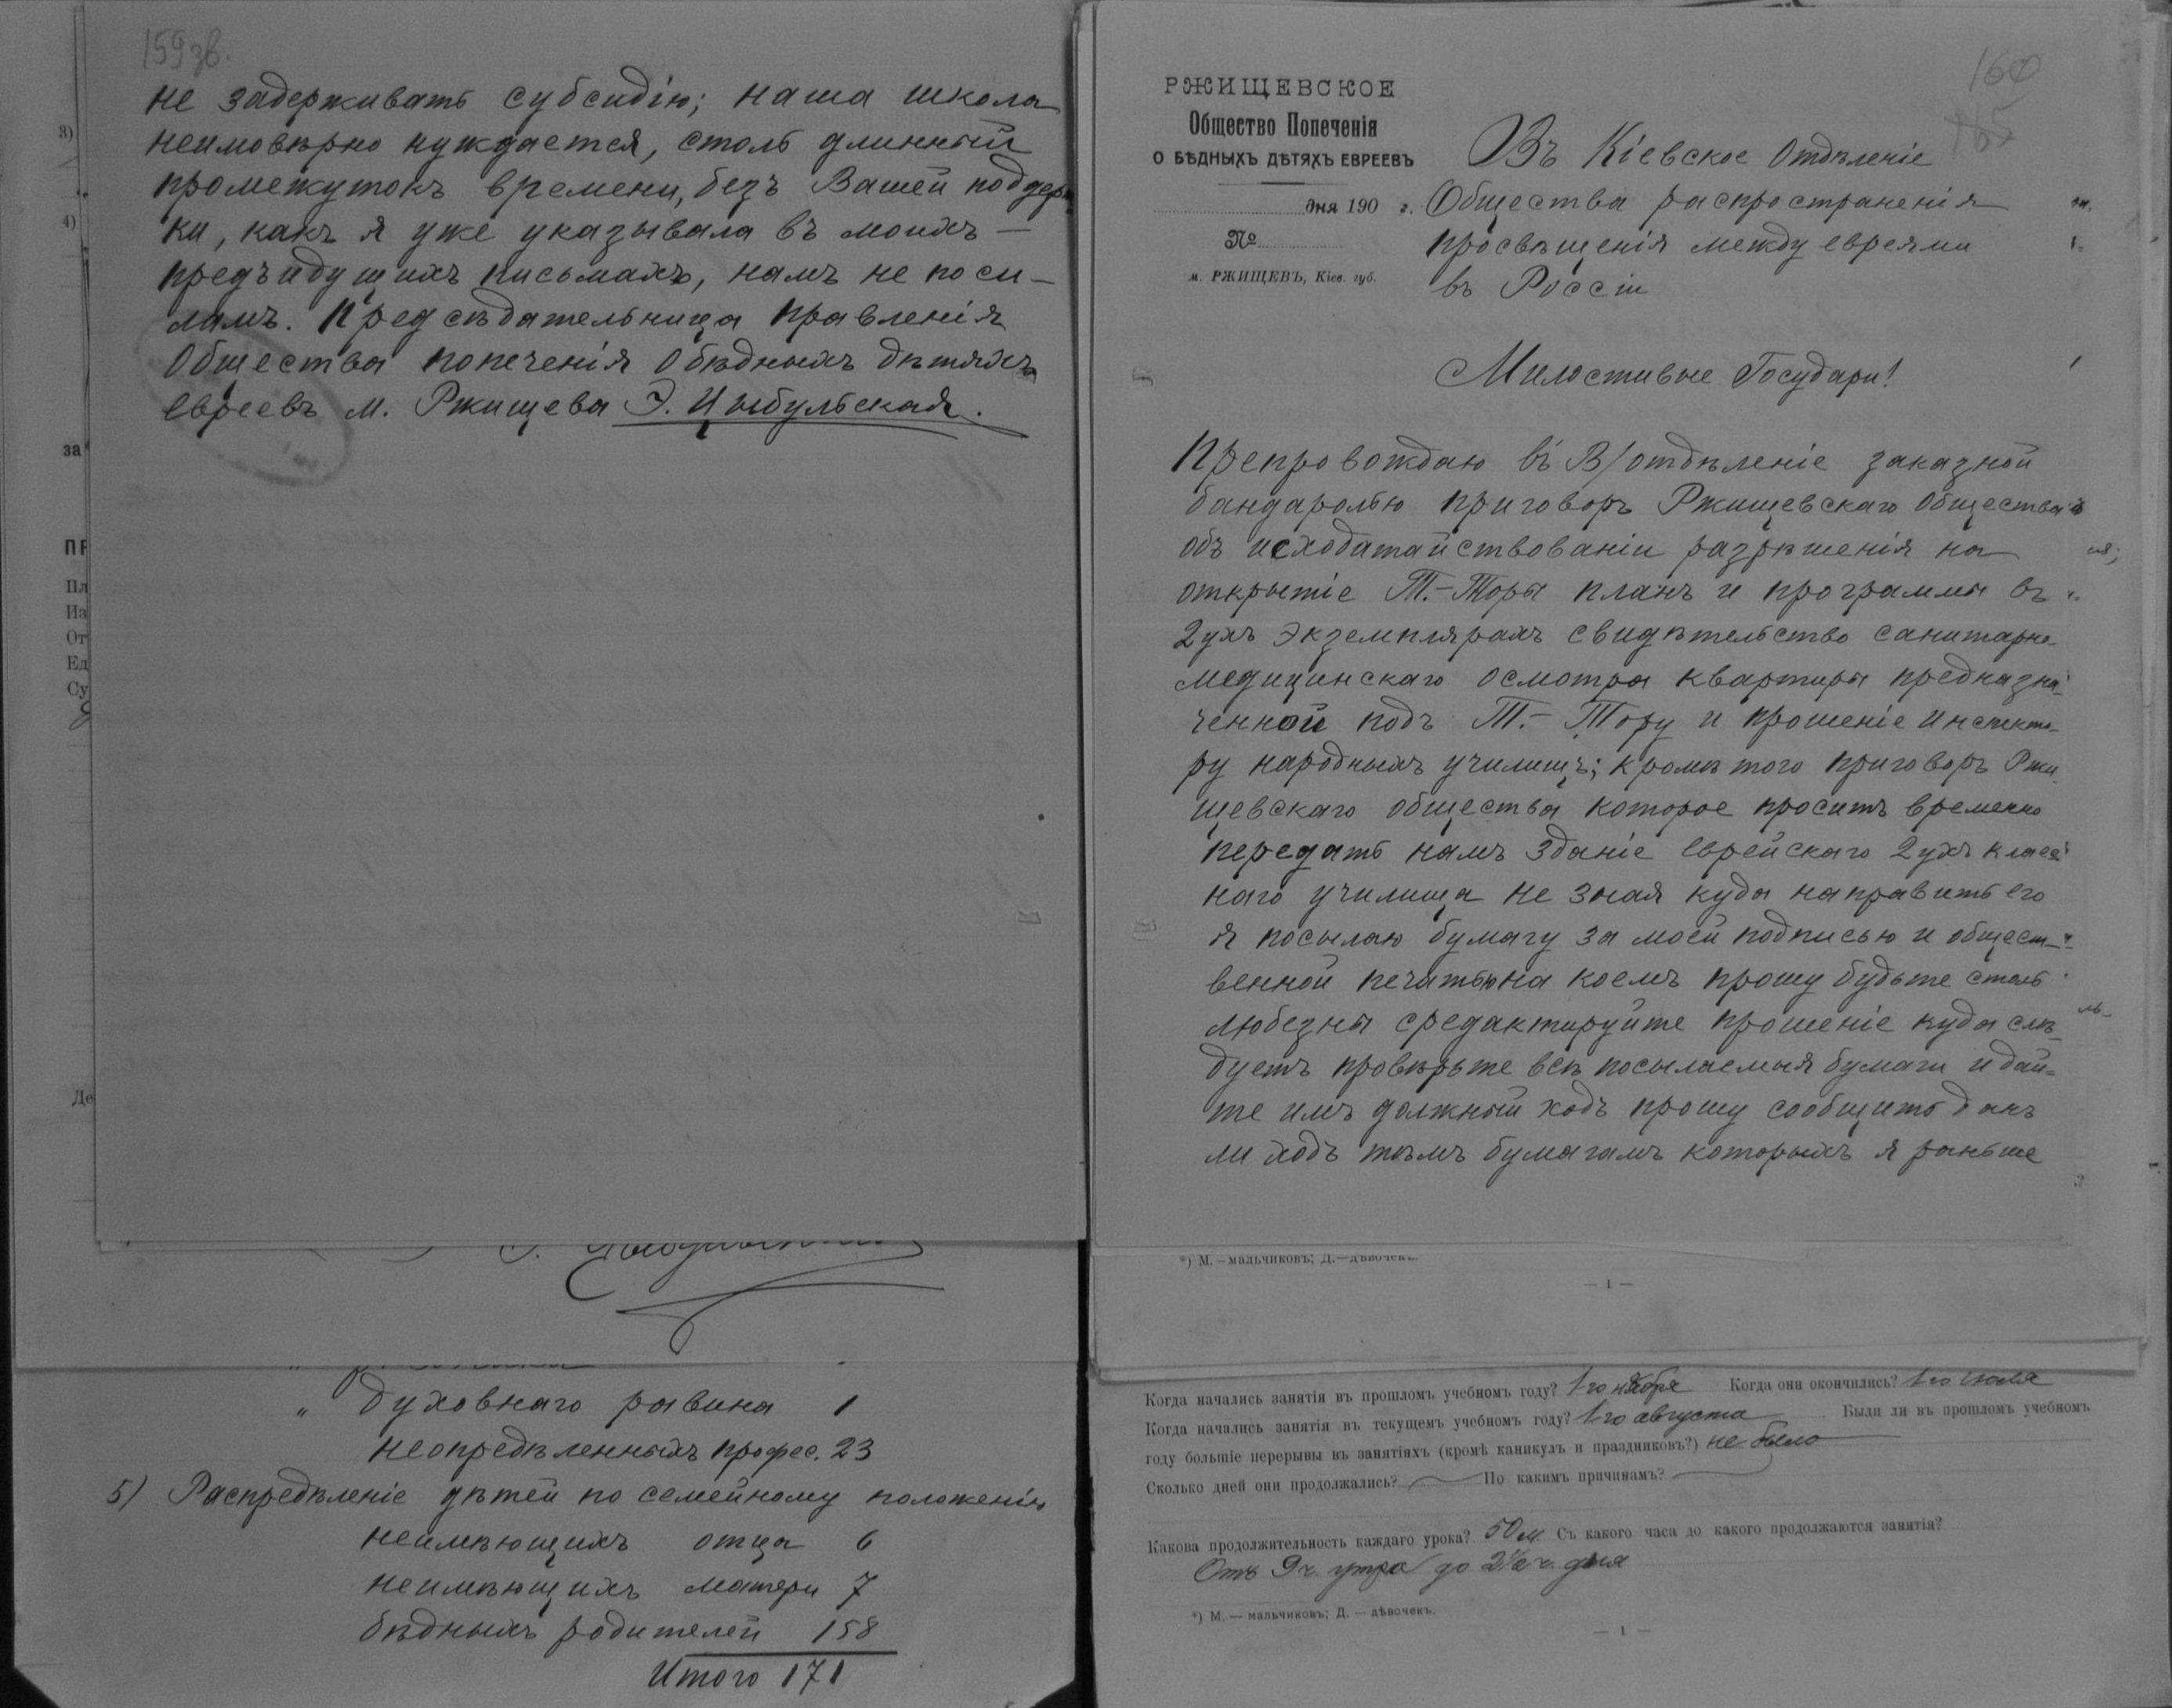 159зв.
не задерживать субсидію; наша школа
неимовѣрно нуждается, столь длинный
промежутокъ времени, безъ Вашей поддерж
ки, какъ я уже указывала въ моихъ —
предъидущихъ письмахъ, намъ не по си-
ламъ. Предсѣдательница правленія
Общества попеченія о бѣдныхъ дѣтяхъ
евреевъ м. Ржищева Э. Цыбульская.
3)
4)
за
ПР
Пл
Из
От
Ед
Су
Де
" духовнаго равина 1
неопредѣленныхъ профес. 23
5) Распредѣленіе дѣтей по семейному положенію
неимѣющихъ отца 6
неимѣющихъ матери 7
бѣдныхъ родителей 158
Итого 171
160
165
РЖИЩЕВСКОЕ
Общество Попеченія
О БѢДНЫХЪ ДѢТЯХЪ ЕВРЕЕВЪ
дня 190 г.
№
м. РЖИЩЕВЪ, Кіев. губ.
Въ Кіевское Отдѣленіе
Общества распространенія
просвѣщенія между евреями
въ Россіи
Милостивые Государи!
Препровождаю въ В/отдѣленіе заказной
бандаролью приговоръ Ржищевскаго Общества
объ исходатайствованіи разрѣшенія на
открытіе Т.-Торы планъ и программы въ
2ухъ экземплярахъ свидѣтельство санитарно-
медицинскаго осмотра квартиры предназна-
ченной подъ Т.- Тору и прошеніе инспекто-
ру народныхъ училищъ; кромѣ того приговоръ Ржи-
щевскаго общества которое проситъ временно
передать намъ зданіе еврейскаго 2ухъ класс
наго училища не зная куда направить его
я посылаю бумагу за моей подписью и общест-
венной печатью на коемъ прошу будьте столь
любезны средактируйте прошеніе куда слѣ-
дуетъ провѣрьте всѣ посылаемыя бумаги и дай-
те имъ должный ходъ прошу сообщить данъ
ли ходъ тѣмъ бумагамъ которыхъ я раньше
*) М.—мальчиковъ; Д.—дѣвочекъ.
— 1 —
Когда начались занятія въ прошломъ учебномъ году? 1го ноября Когда они окончились? 1го Іюля
Когда начались занятія въ текущемъ учебномъ году? 1го августа Были ли въ прошломъ учебномъ
году большіе перерывы въ занятіяхъ (кромѣ каникулъ и праздниковъ?) не было
Сколько дней они продолжались? По какимъ причинамъ?
Какова продолжительность каждаго урока? 50 м. Съ какого часа до какого продолжаются занятія?
Отъ 9 ч. утра до 2½ ч. дня
*) М. — мальчиковъ; Д. — дѣвочек.
— 1 —